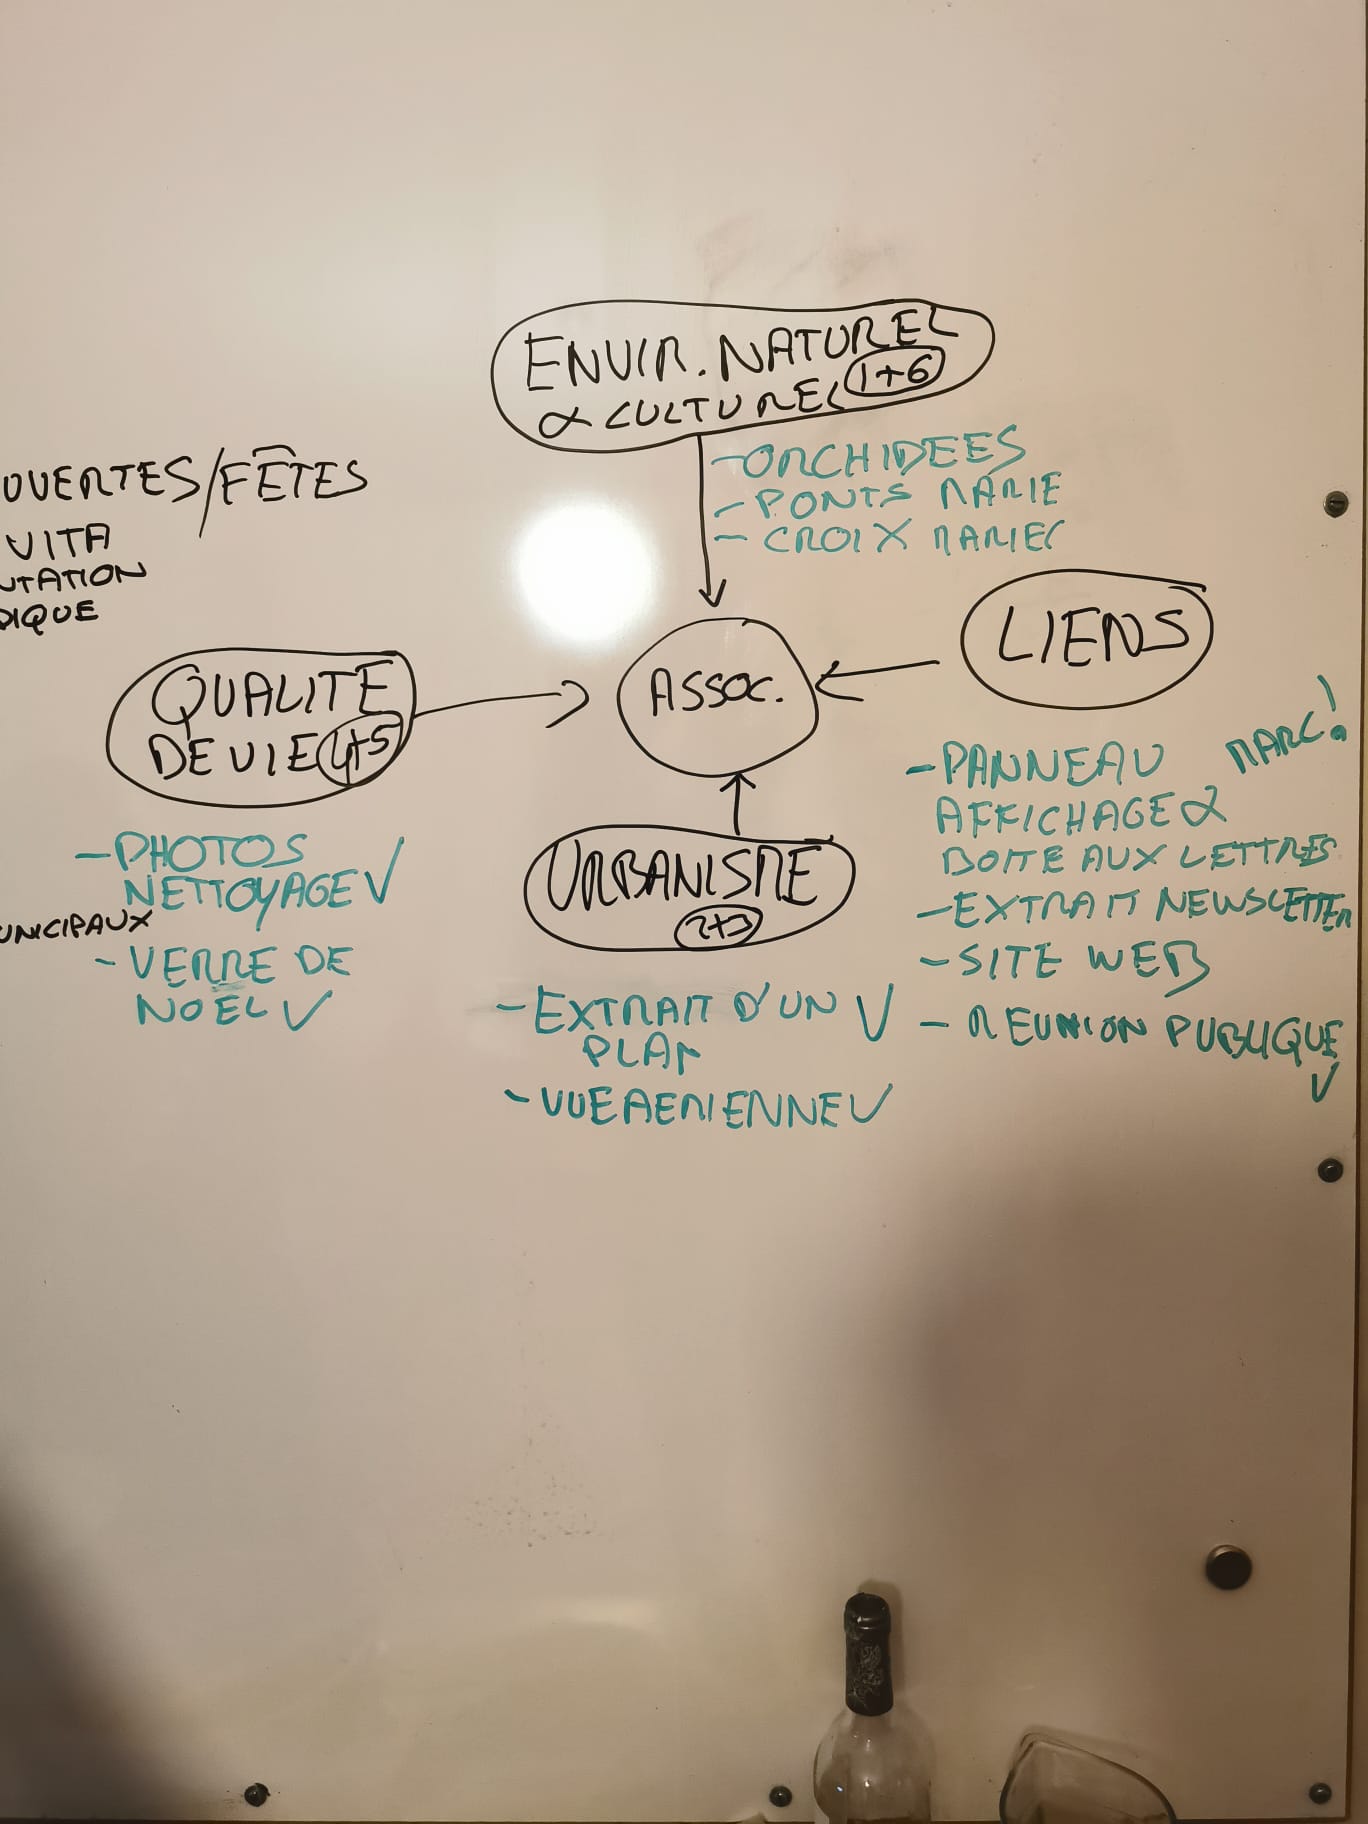 ENVIR. NATUREL
& CULTUREL 1+6
- ORCHIDEES
- PONTS MARIE
- CROIX MARIE
OUVERTES/FÊTES
VITA
NTATION
DIQUE
LIENS
QUALITE
DE VIE 4+5
ASSOC.
MARC!
- PANNEAU
AFFICHAGE &
BOITE AUX LETTRES
- EXTRAIT NEWSLETTER
- SITE WEB
- REUNION PUBLIQUE
V
- PHOTOS
NETTOYAGE V
UNICIPAUX
- VERRE DE
NOEL V
URBANISME
2+3
- EXTRAIT D'UN V
PLAN
- VUE AERIENNE V